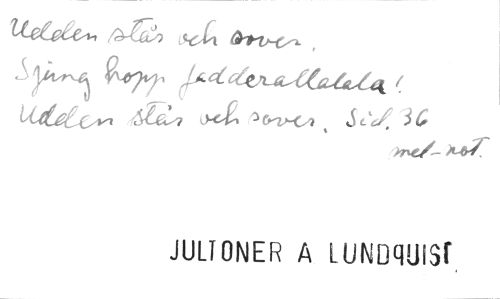 Udden står och sover.
Sjung hopp fadderallalala!
Udden står och sover. Sid. 36
mel-not.
JULTONER A LUNDQUIST